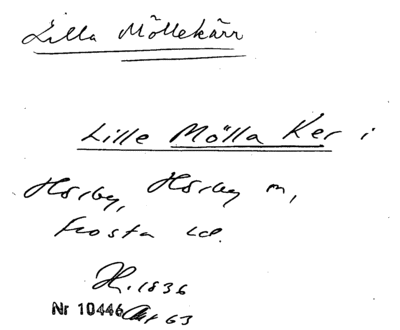 Lilla Möllekärr
Lille Mölla Ker i
Hörby, Hörby m,
Frosta hd.
H. 1836
Nr 10446 Akt 63